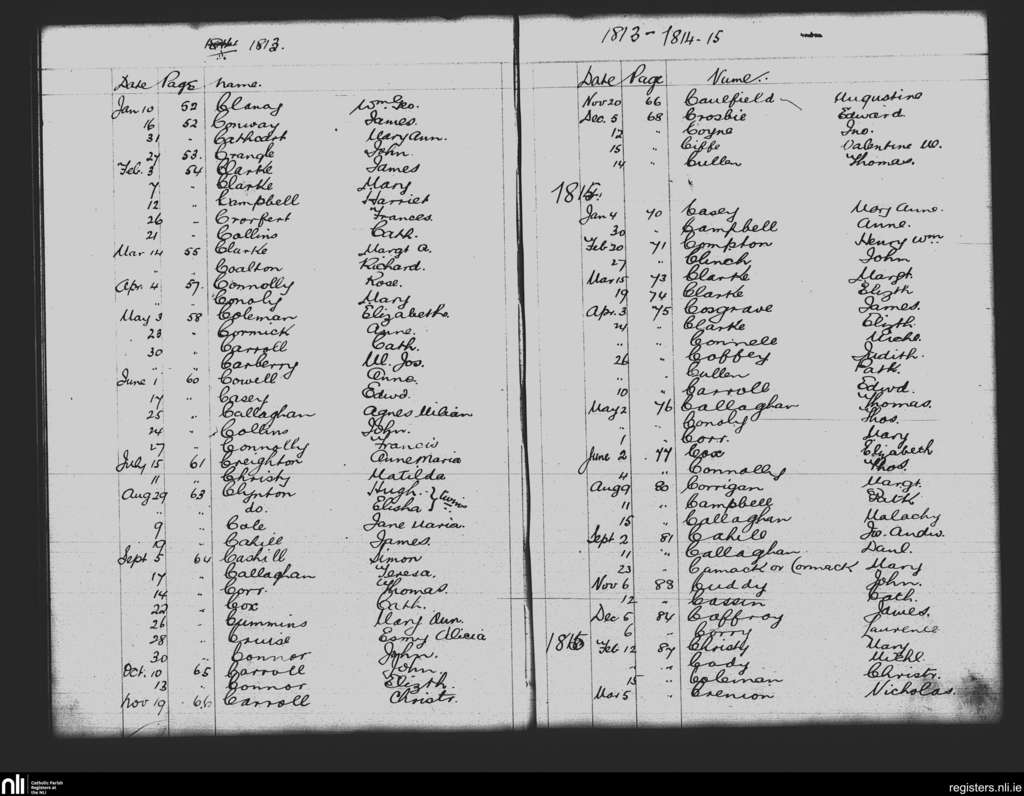 1813.
Date Page Name.
Jan 10 52 Clanay Wm. Geo.
16 52 Conway James.
31 " Cathcart Mary Ann.
27 53. Crangle John
Feb. 3 54 Clarke James
7 " Clarke Mary
12 " Campbell Harriet
26 " Frances.
21 " Collins Cath.
Mar 14 55 Clarke Margt A.
" " Coalton Richard.
Apr. 4 57. Connolly Rose.
" " Conoly Mary
May 3 58 Coleman Elizabeth
23 " Cormick Anne.
30 " Carroll Cath.
" " Carberry W. Jos.
June 1 60 Cowell Anne
17 " Casey Edwd.
25 " Callaghan Agnes
24 " Collins John.
27 " Connolly Francis
July 15 61 Creighton Anne Maria
11 " Christy Matilda
Aug 29 63 Clynton Hugh } twins
" " do. Elisha
9 " Cole Jane Maria.
19 " Cahill James.
Sept 5 64 Cashill Simon
17 " Callaghan Teresa.
14 " Corr. Thomas.
22 " Cox Cath.
26 " Cummins Mary Ann.
28 " Cruise Esmy Alicia
30 " Connor John.
Oct. 10 65 Carroll John
13 " Connor Elizth.
Nov 19 66 Carroll Christr.
1813 - 1814 - 15
Date Page Name.
Nov 20 66 Caulfield Augustine
Dec. 5 68 Crosbie Edward
12 " Coyne Jno.
15 " Valentine W.
14 " Cullen Thomas.
1815.
Jan 4 70 Casey Mary Anne.
30 " Campbell Anne.
Feb 20 71 Compton Henry Wm
27 " Clinch John
Mar 15 73 Clarke Margt.
19 74 Clarke Elizth
Apr. 3 75 Cosgrave James.
24 " Clarke Elizth.
" " Connell Michl.
26 " Coffey Judith.
" " Cullen Patk.
10 " Carroll Edwd.
May 2 76 Callaghan Thomas.
" " Conoly Thos.
1 " Corr. Mary
June 2 77 Cox Elizabeth
4 " Connolly Thos.
Aug 9 80 Corrigan Margt.
11 " Campbell Patk
15 " Callaghan Malachy
Sept 2 81 Cahill Jo. Andw.
11 " Callaghan Danl.
23 " Camack or Cormack Mary
Nov 6 83 Cuddy John.
12 " Cassin Cath.
Dec 5 84 Caffray James.
6 " Corry Laurence
1816 Feb 12 87 Christy Mary
" " Cady Michl
15 " Coleman Christr.
Mar 5 " Crenion Nicholas.
nli Catholic Parish
Registers at
the NLI
registers.nli.ie